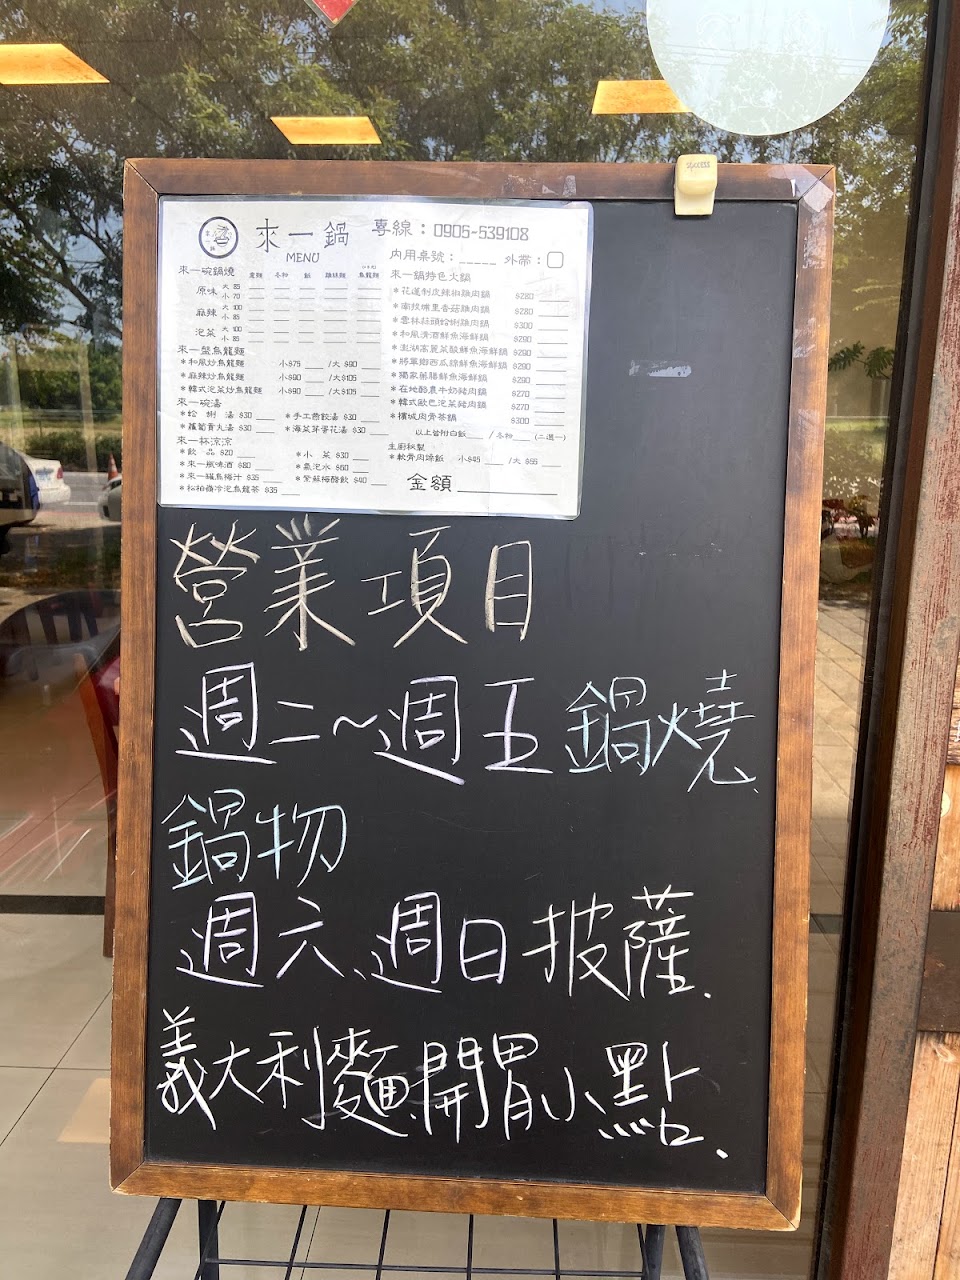 success
來一鍋
MENU
專線：0905-539108
內用桌號：_____ 外帶：□
來一碗鍋燒 意麵 冬粉 飯 雞絲麵 烏龍麵
原味 大 85
小 70
麻辣 大 100
小 85
泡菜 大 100
小 85
來一盤烏龍麵
＊和風炒烏龍麵 小$75 ___/大 $90 ___
＊麻辣炒烏龍麵 小$90 ___/大$105 ___
＊韓式泡菜炒烏龍麵 小$90 ___/大$105 ___
來一碗湯
＊蛤 蜊 湯 $30 ___ ＊手工燕餃湯 $30 ___
＊蘿蔔貢丸湯 $30 ___ ＊海菜芽蛋花湯 $30 ___
來一杯涼涼
＊飲 品 $20 ___ ＊小 菜 $30 ___
＊來一瓶啤酒 $80 ___ ＊氣泡水 $60 ___
＊來一罐烏梅汁 $35 ___ ＊紫蘇梅醋飲 $40 ___
＊松柏嶺冷泡烏龍茶 $35 ___
來一鍋特色火鍋
＊花蓮剝皮辣椒雞肉鍋 $280 ___
＊南投埔里香菇雞肉鍋 $280 ___
＊雲林蒜頭蛤蜊雞肉鍋 $300 ___
＊和風清酒鮮魚海鮮鍋 $290 ___
＊澎湖高麗菜酸鮮魚海鮮鍋 $290 ___
＊將軍鄉西瓜綿鮮魚海鮮鍋 $290 ___
＊獨家藥膳鮮魚海鮮鍋 $290 ___
＊在地酪農牛奶豬肉鍋 $270 ___
＊韓式歐巴泡菜豬肉鍋 $270 ___
＊檳城肉骨茶鍋 $300 ___
以上皆附白飯___ /冬粉___ (二選一)
主廚秘製
＊軟骨肉燥飯 小$45 ___/大 $55 ___
金額__________
營業項目
週二~週五鍋燒、
鍋物
週六、週日披薩、
義大利麵、開胃小點、